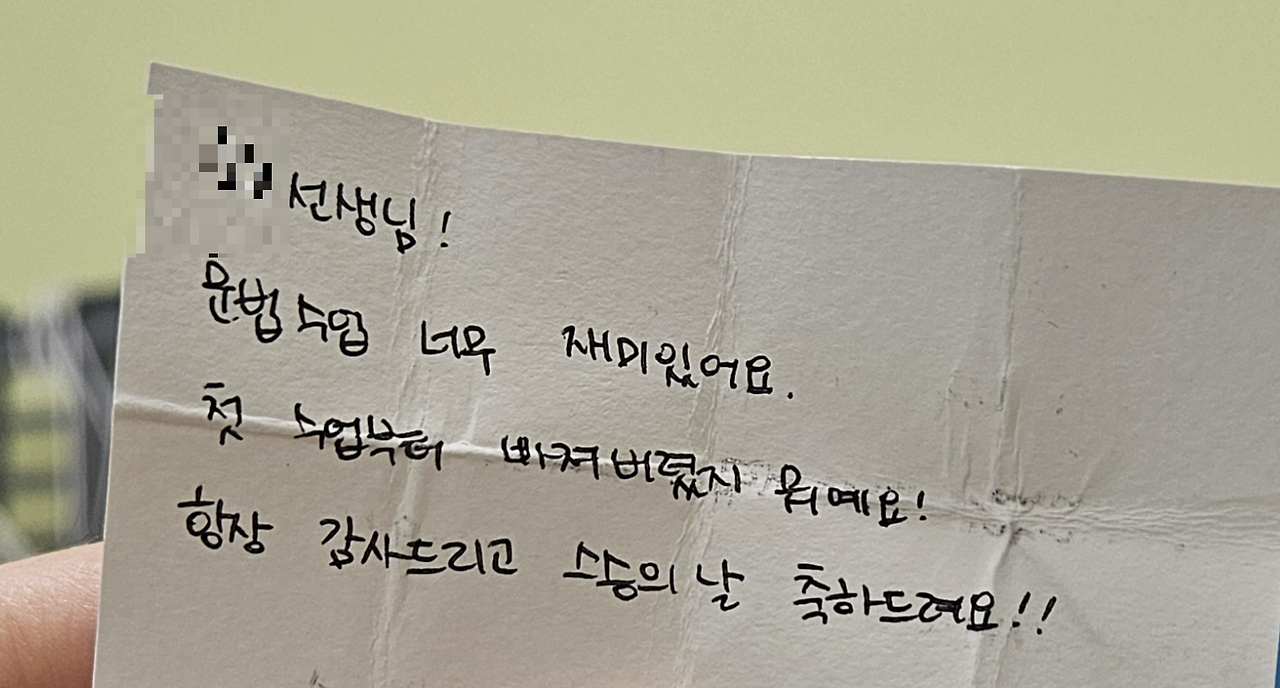 선생님!
문법수업 너무 재미있어요.
첫 수업부터 빠져버렸지 뭐예요!
항상 감사드리고 스승의날 축하드려요!!